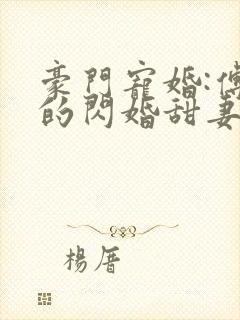 豪門寵婚:傅
的閃婚甜妻
楊厝